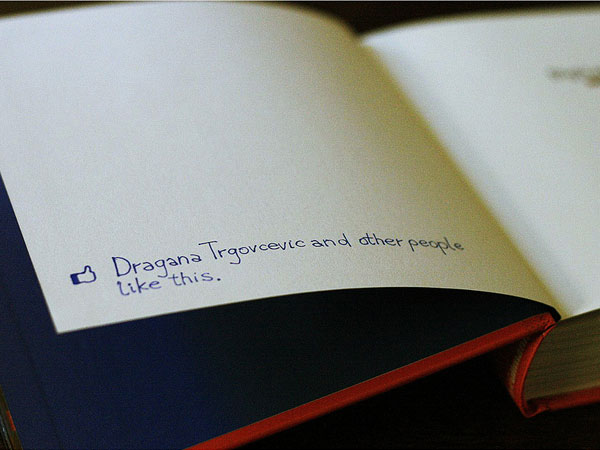 Dragana Trgovcevic and other people
like this.